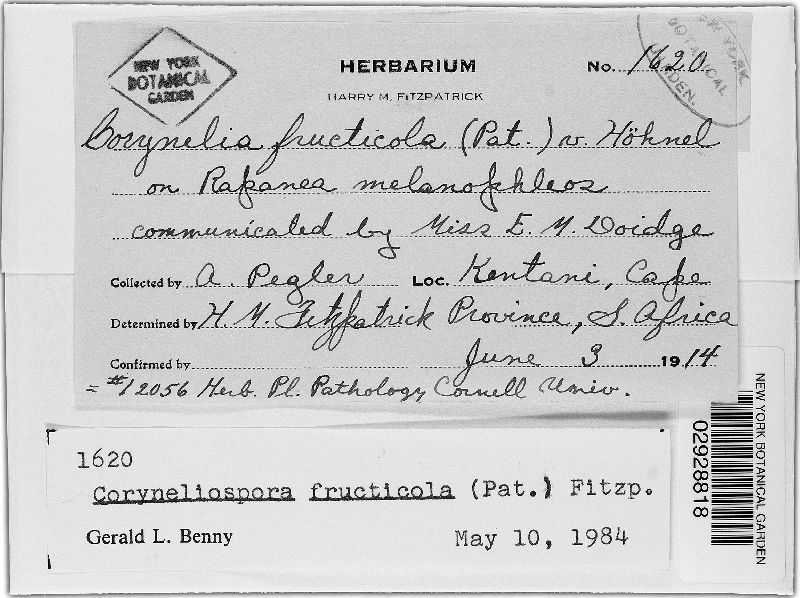 NEW YORK
BOTANICAL
GARDEN
HERBARIUM
No. 1620
NEW YORK
BOTANICAL
GARDEN.
HARRY M. FITZPATRICK
Corynelia fructicola (Pat.) v. Höhnel
on Rapanea melanophleos
communicated by Miss E. M. Doidge
Collected by A. Pegler Loc. Kentani, Cape
Determined by H M Fitzpatrick Province, S. Africa
Confirmed by June 3 1914
= #12056 Herb. Pl. Pathology Cornell Univ.
1620
Coryneliospora fructicola (Pat.) Fitzp.
Gerald L. Benny May 10, 1984
NEW YORK BOTANICAL GARDEN
02928818